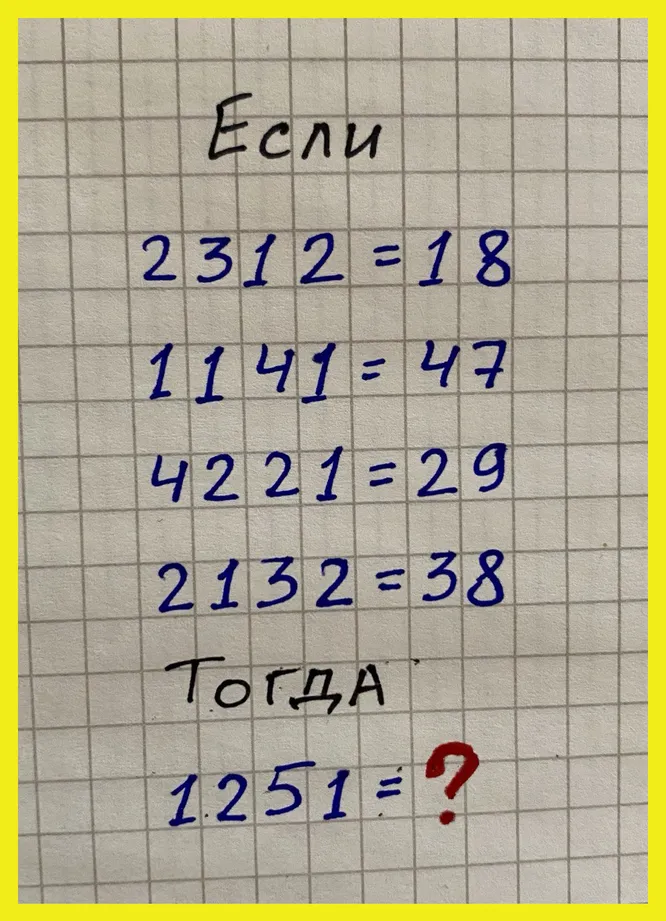 Если
2312=18
1141=47
4221=29
2132=38
Тогда
1251=?